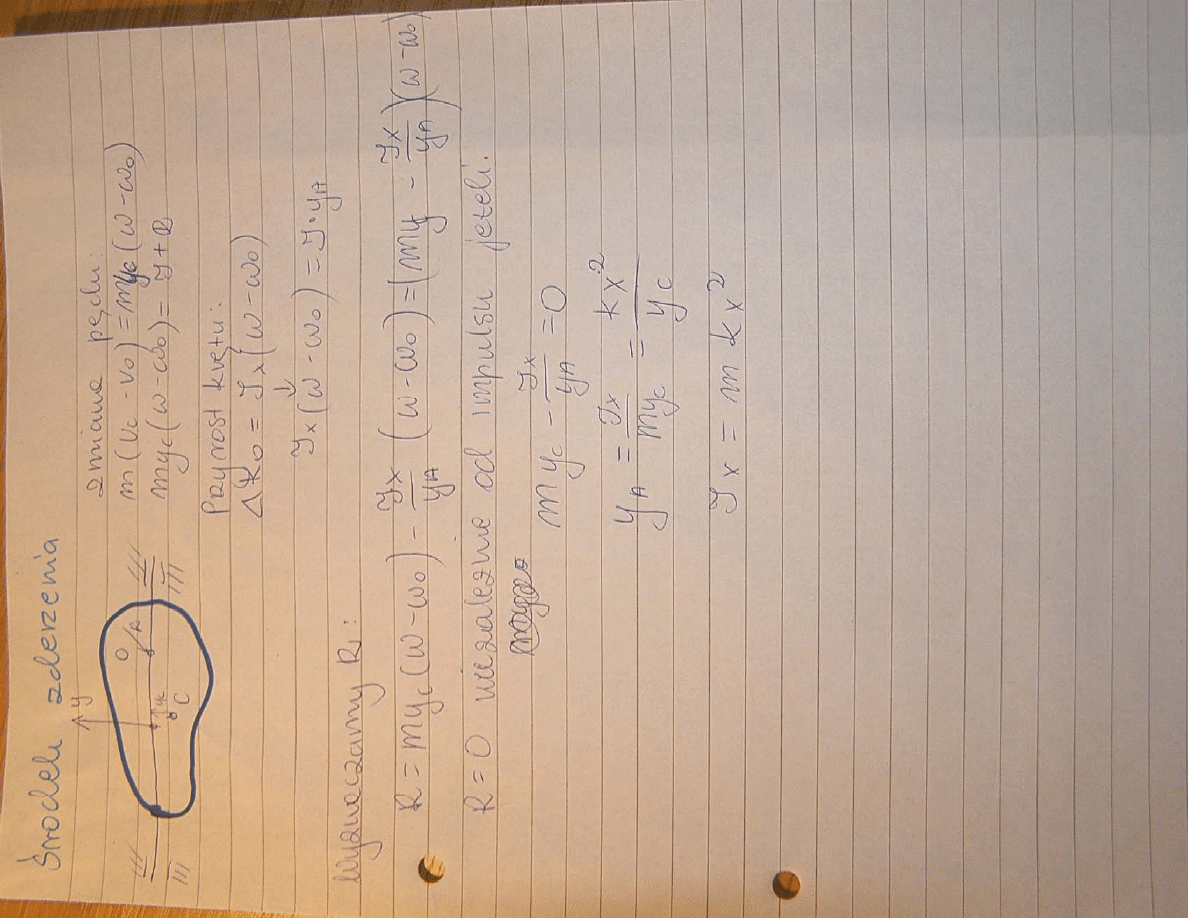 Środek zderzenia
y
O
A
C
zmiana pędu:
m(vc - v0) = myc(ω-ω0)
myc(ω-ω0) = J + R
Przyrost krętu:
ΔK0 = Jx(ω-ω0)
↓
Jx(ω-ω0) = J·yA
Wyznaczamy R:
R = myc(ω-ω0) - Jx/yA (ω-ω0) = (my - Jx/yA)(ω-ω0)
R=0 niezależnie od impulsu jeżeli.
myc - Jx/yA = 0
yA = Jx/myc = kx²/yc
Jx = m kx²